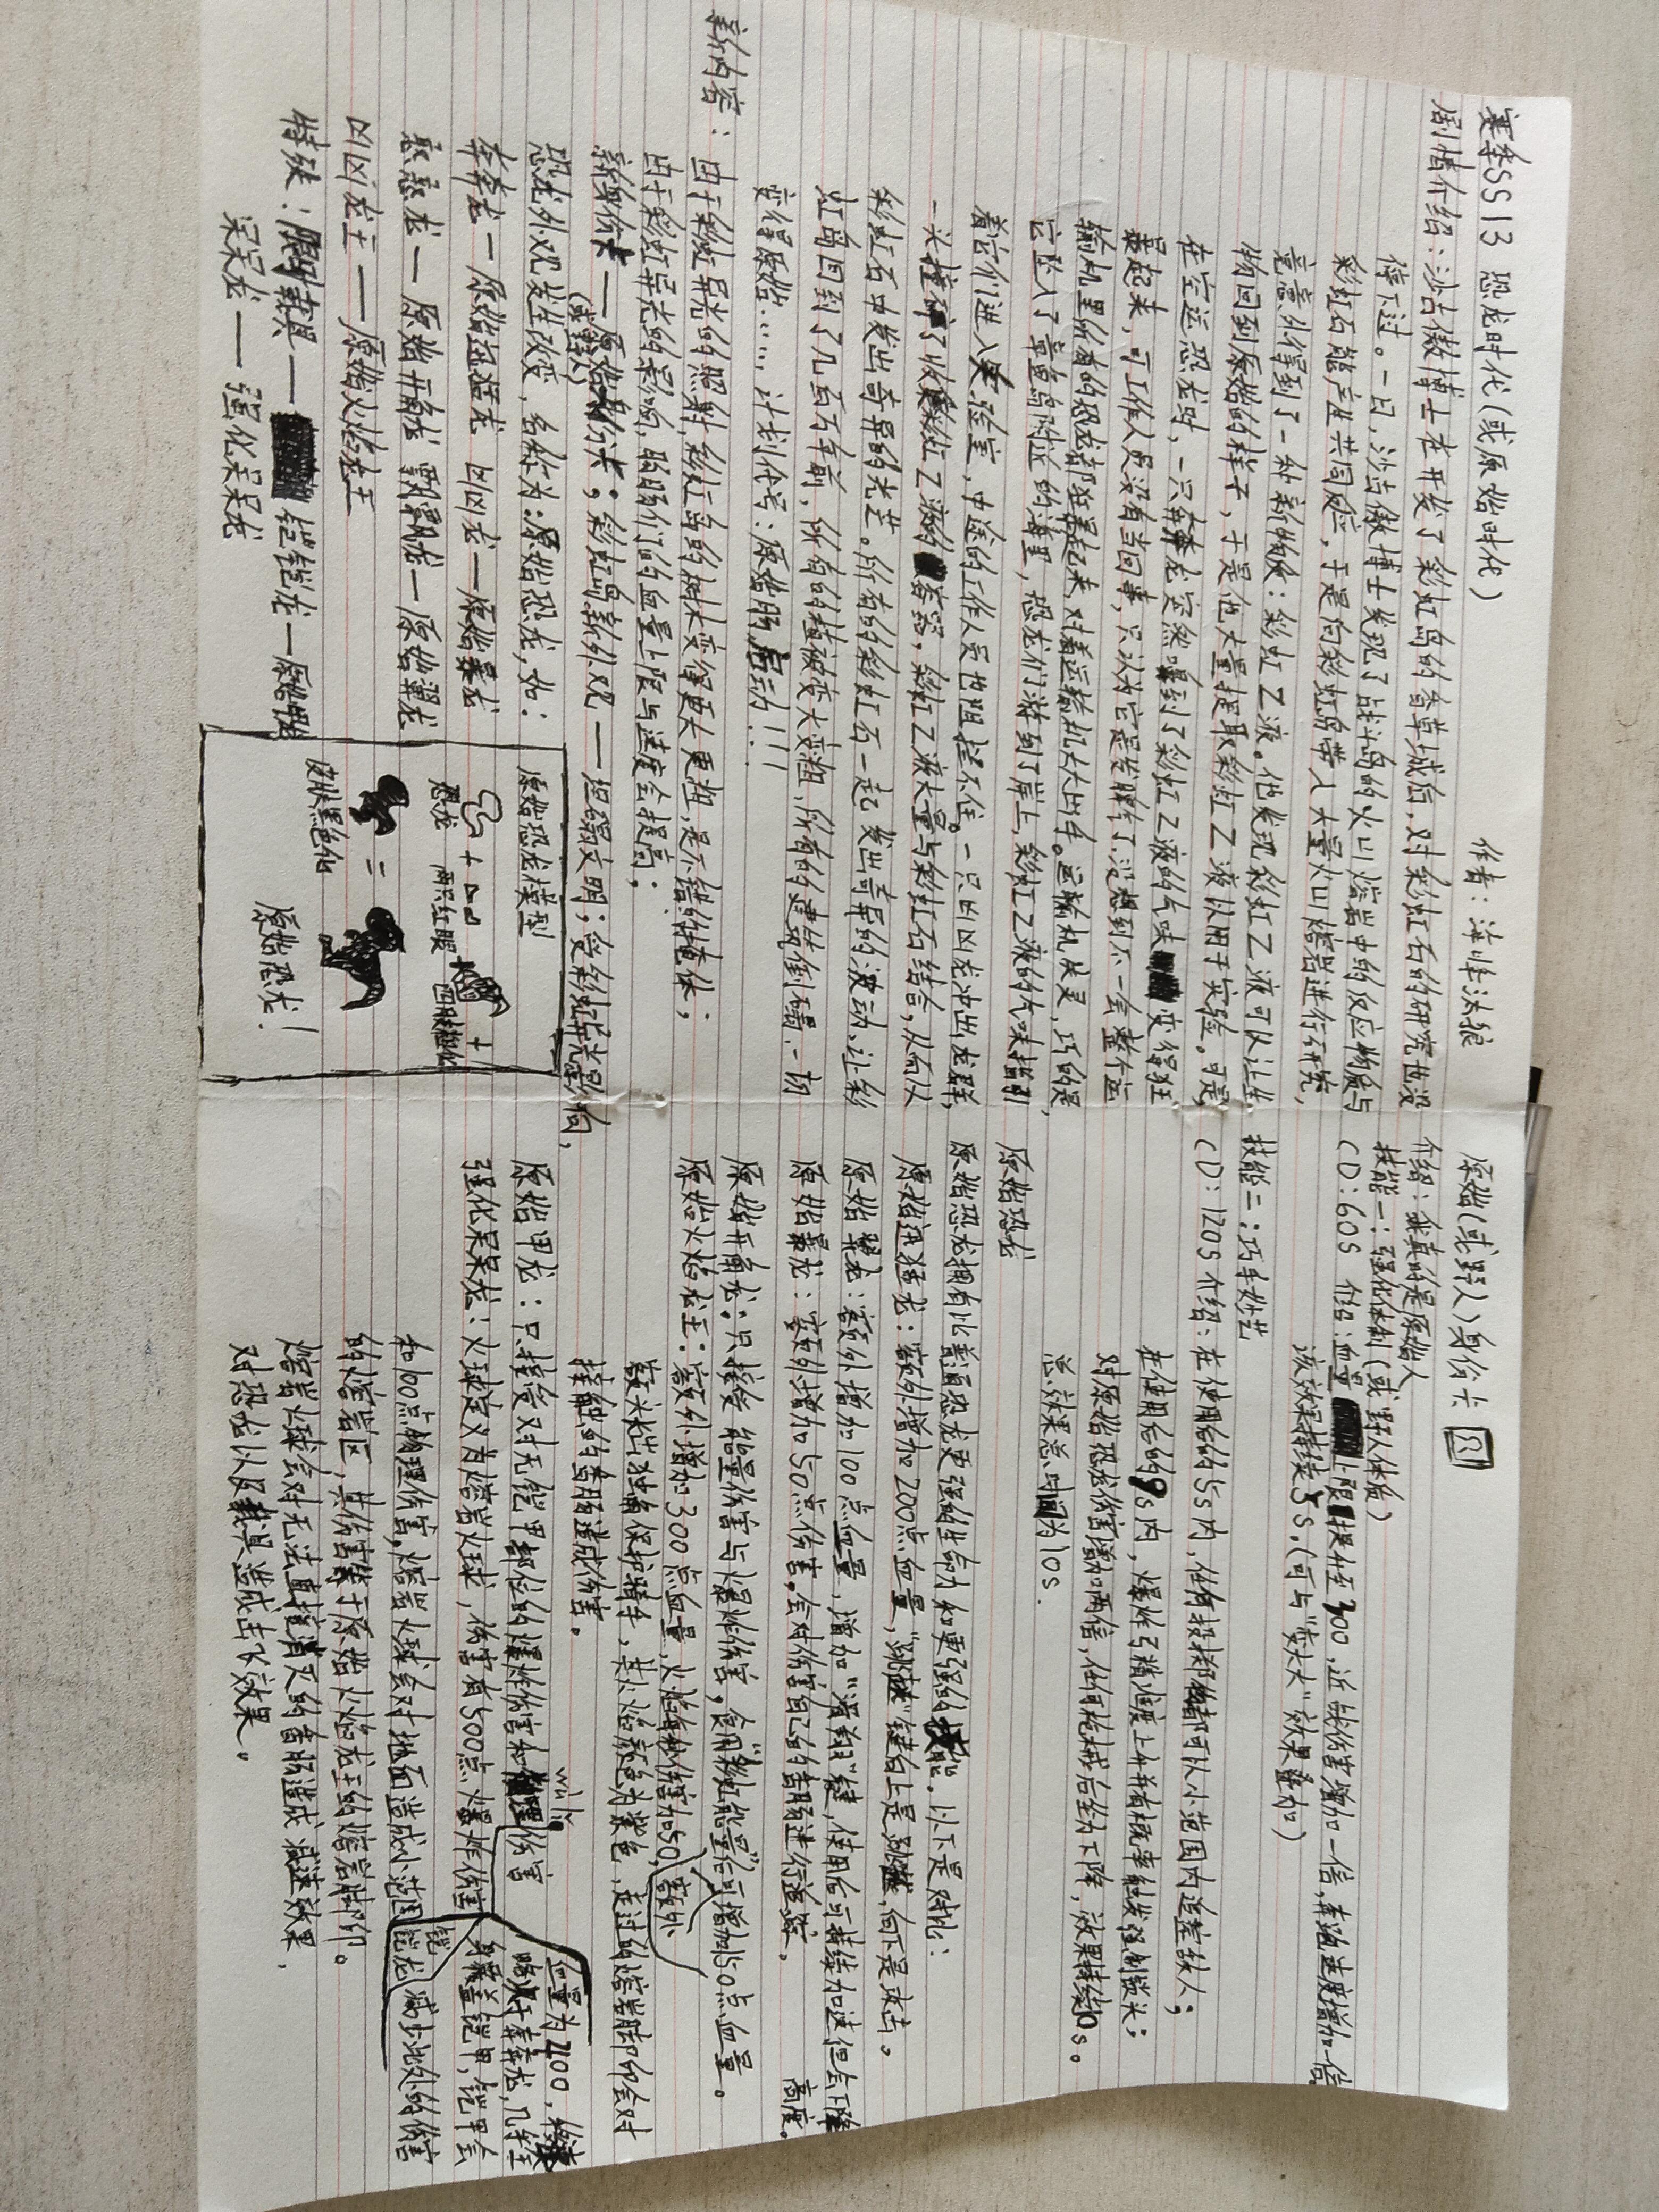 赛季SS13 恐龙时代(或原始时代)
作者:海啸沃狼
剧情介绍:沙古傲博士在开发了彩虹岛的香草城后,对彩虹石的研究也没
停下过。一日,沙古傲博士发现了战斗岛的火山熔岩中的反应物质与
彩虹石能产生共同反应,于是向彩虹岛带入大量火山熔岩进行研究,
意外得到了一种新物质:彩虹乙液。他发现彩虹乙液可以让生
物回到原始的样子,于是他大量提取彩虹乙液以用于实验。可是,
在空运恐龙时,一只奔奔龙突然嗅到了彩虹乙液的气味变得狂
暴起来,可工作人员没有当回事,只认为它是发脾了,没想到不一会整个运
输机里所有的恐龙都狂暴起来,对着运输机大打出手。运输机失灵,巧的是,
它坠入了章鱼岛附近的海里,恐龙们游到了岸上,彩虹乙液的气味指引
着它们进入实验室,中途的工作人员也阻拦不住。一只凶凶龙冲出龙群,
一头撞碎了收集彩虹乙液的容器,彩虹乙液大量与彩虹石结合,从而从
彩虹石中发出奇异的光芒。所有的彩虹石一起发出奇异的波动,让彩
虹岛回到了几百万年前,所有的植被变大变粗,所有的建筑倒塌,一切
变得原始……,计划代号:原始肠,启动!!!
新内容:由于彩虹异光的照射,彩虹岛的树木变得更大更粗,是不错的掩体;
由于彩虹异光的影响,肠肠们的血量上限与速度会提高;
新身份卡——原始身份卡;彩虹岛新外观——坍塌文明;受彩虹异光影响,
(或野人)
恐龙外观发生改变,名称为:原始恐龙,如:
奔奔龙—原始迅猛龙 凶凶龙—原始暴龙
憨憨龙—原始开角龙 飘飘龙—原始翼龙
凶凶龙王——原始火焰龙王
特殊:限时载具——铠铠龙—原始甲龙
呆呆龙——强化呆呆龙
原始恐龙模型
恐龙 + 两只红眼 + 四肢粗化 +
皮肤黑色化 = 原始恐龙!
原始(或野人)身份卡
介绍:我真的是原始人
技能一:强化体制(或野人体质)
CD:60s 介绍:血量上限提升至300,近战伤害增加一倍,奔跑速度增加一倍
该效果持续5s.(可与“变大大”效果叠加)
技能二:巧手妙艺
CD:120s 介绍:在使用后的5s内,任何投掷物都可以小范围内追踪敌人;
在使用后的9s内,爆炸弓精准度上升并有概率触发强制锁头;
对原始恐龙伤害增加两倍,任何枪械后坐力下降,效果持续10s。
总效果总时间为10s.
原始恐龙
原始恐龙拥有比普通恐龙更强的生命力和更强的技能.以下是对比:
原始迅猛龙:额外增加200点血量,“跳跃”键向上是跳跃,向下是攻击。
原始翼龙:额外增加100点血量,增加“滑翔”键,使用后可持续加速但会下降
高度。
原始暴龙:额外增加50点伤害,会对伤害自己的香肠进行追踪。
原始开角龙:只接受能量伤害与爆炸伤害,食用“彩虹能量”后可增加150点血量。
原始火焰龙王:额外增加300点血量,火焰每秒伤害加50,额外
装头上独角保护骑手,其火焰颜色为紫色,走过的熔岩脚印会对
接触的香肠造成伤害。
原始甲龙:只接受对无铠甲部位的爆炸伤害和物理伤害
wù lǐ
血量为2100,
略大于奔奔龙,几乎全
身覆盖铠甲,铠甲会
减少此处的伤害
铠铠龙
强化呆呆龙:火球定义为熔岩火球,伤害有500点爆炸伤害
和100点物理伤害,熔岩火球会对地面造成小范围
的熔岩区,其伤害等于原始火焰龙王的熔岩脚印。
熔岩火球会对无法直接消灭的香肠造成减速效果,
对恐龙以及载具造成击飞效果。